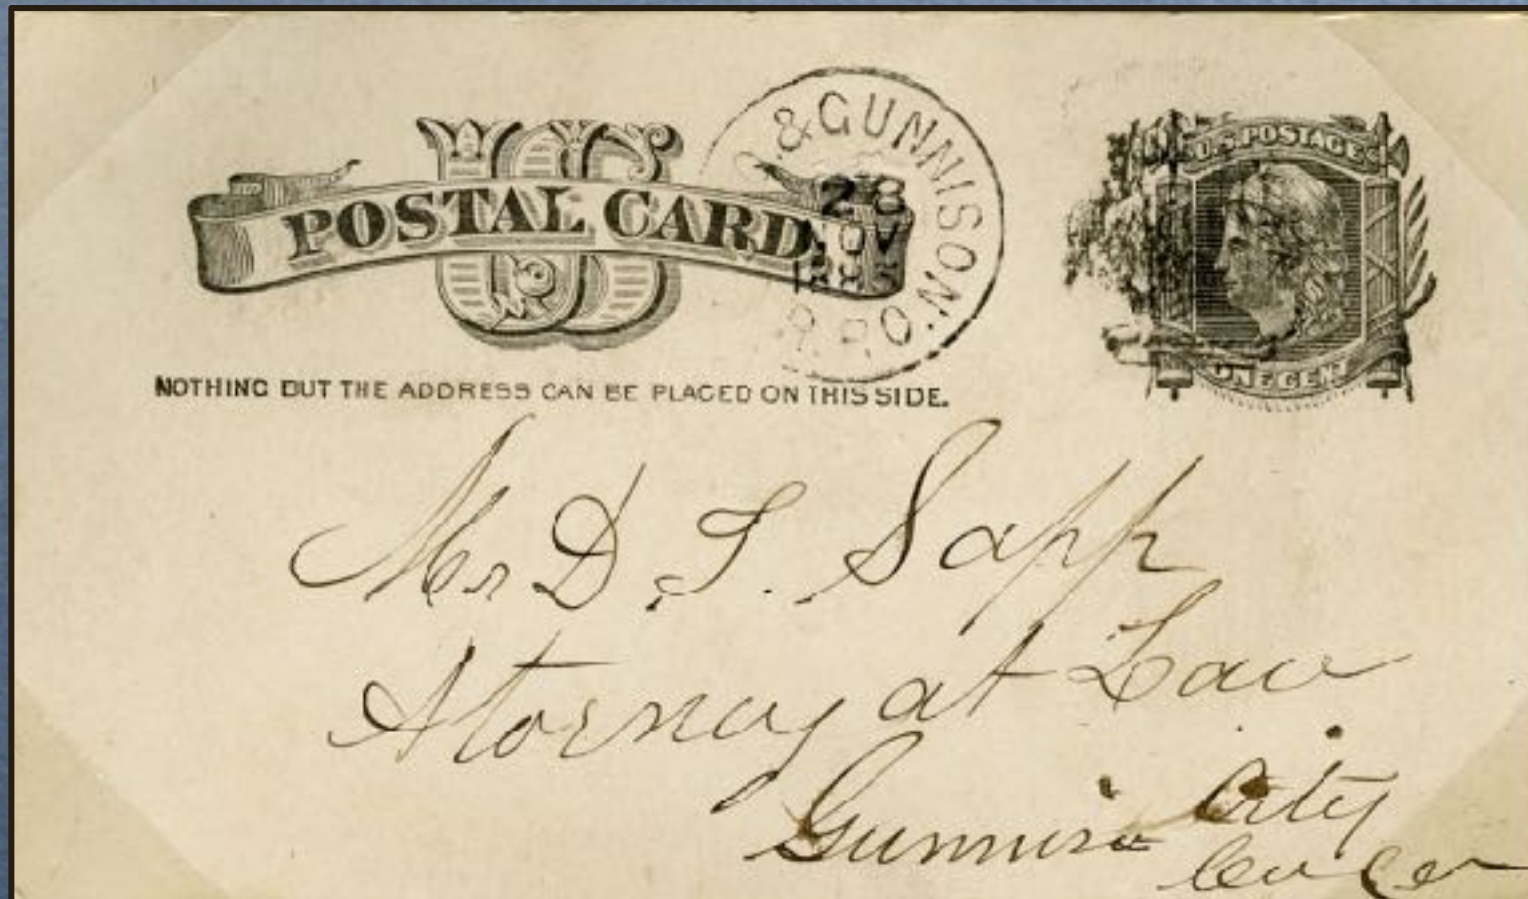 US
POSTAL CARD
& GUNNISON
28
NOV
R.P.O.
U.S. POSTAGE
ONE CENT
NOTHING BUT THE ADDRESS CAN BE PLACED ON THIS SIDE.
Mr D. S. Sapp
Attorney at Law
Gunnison City